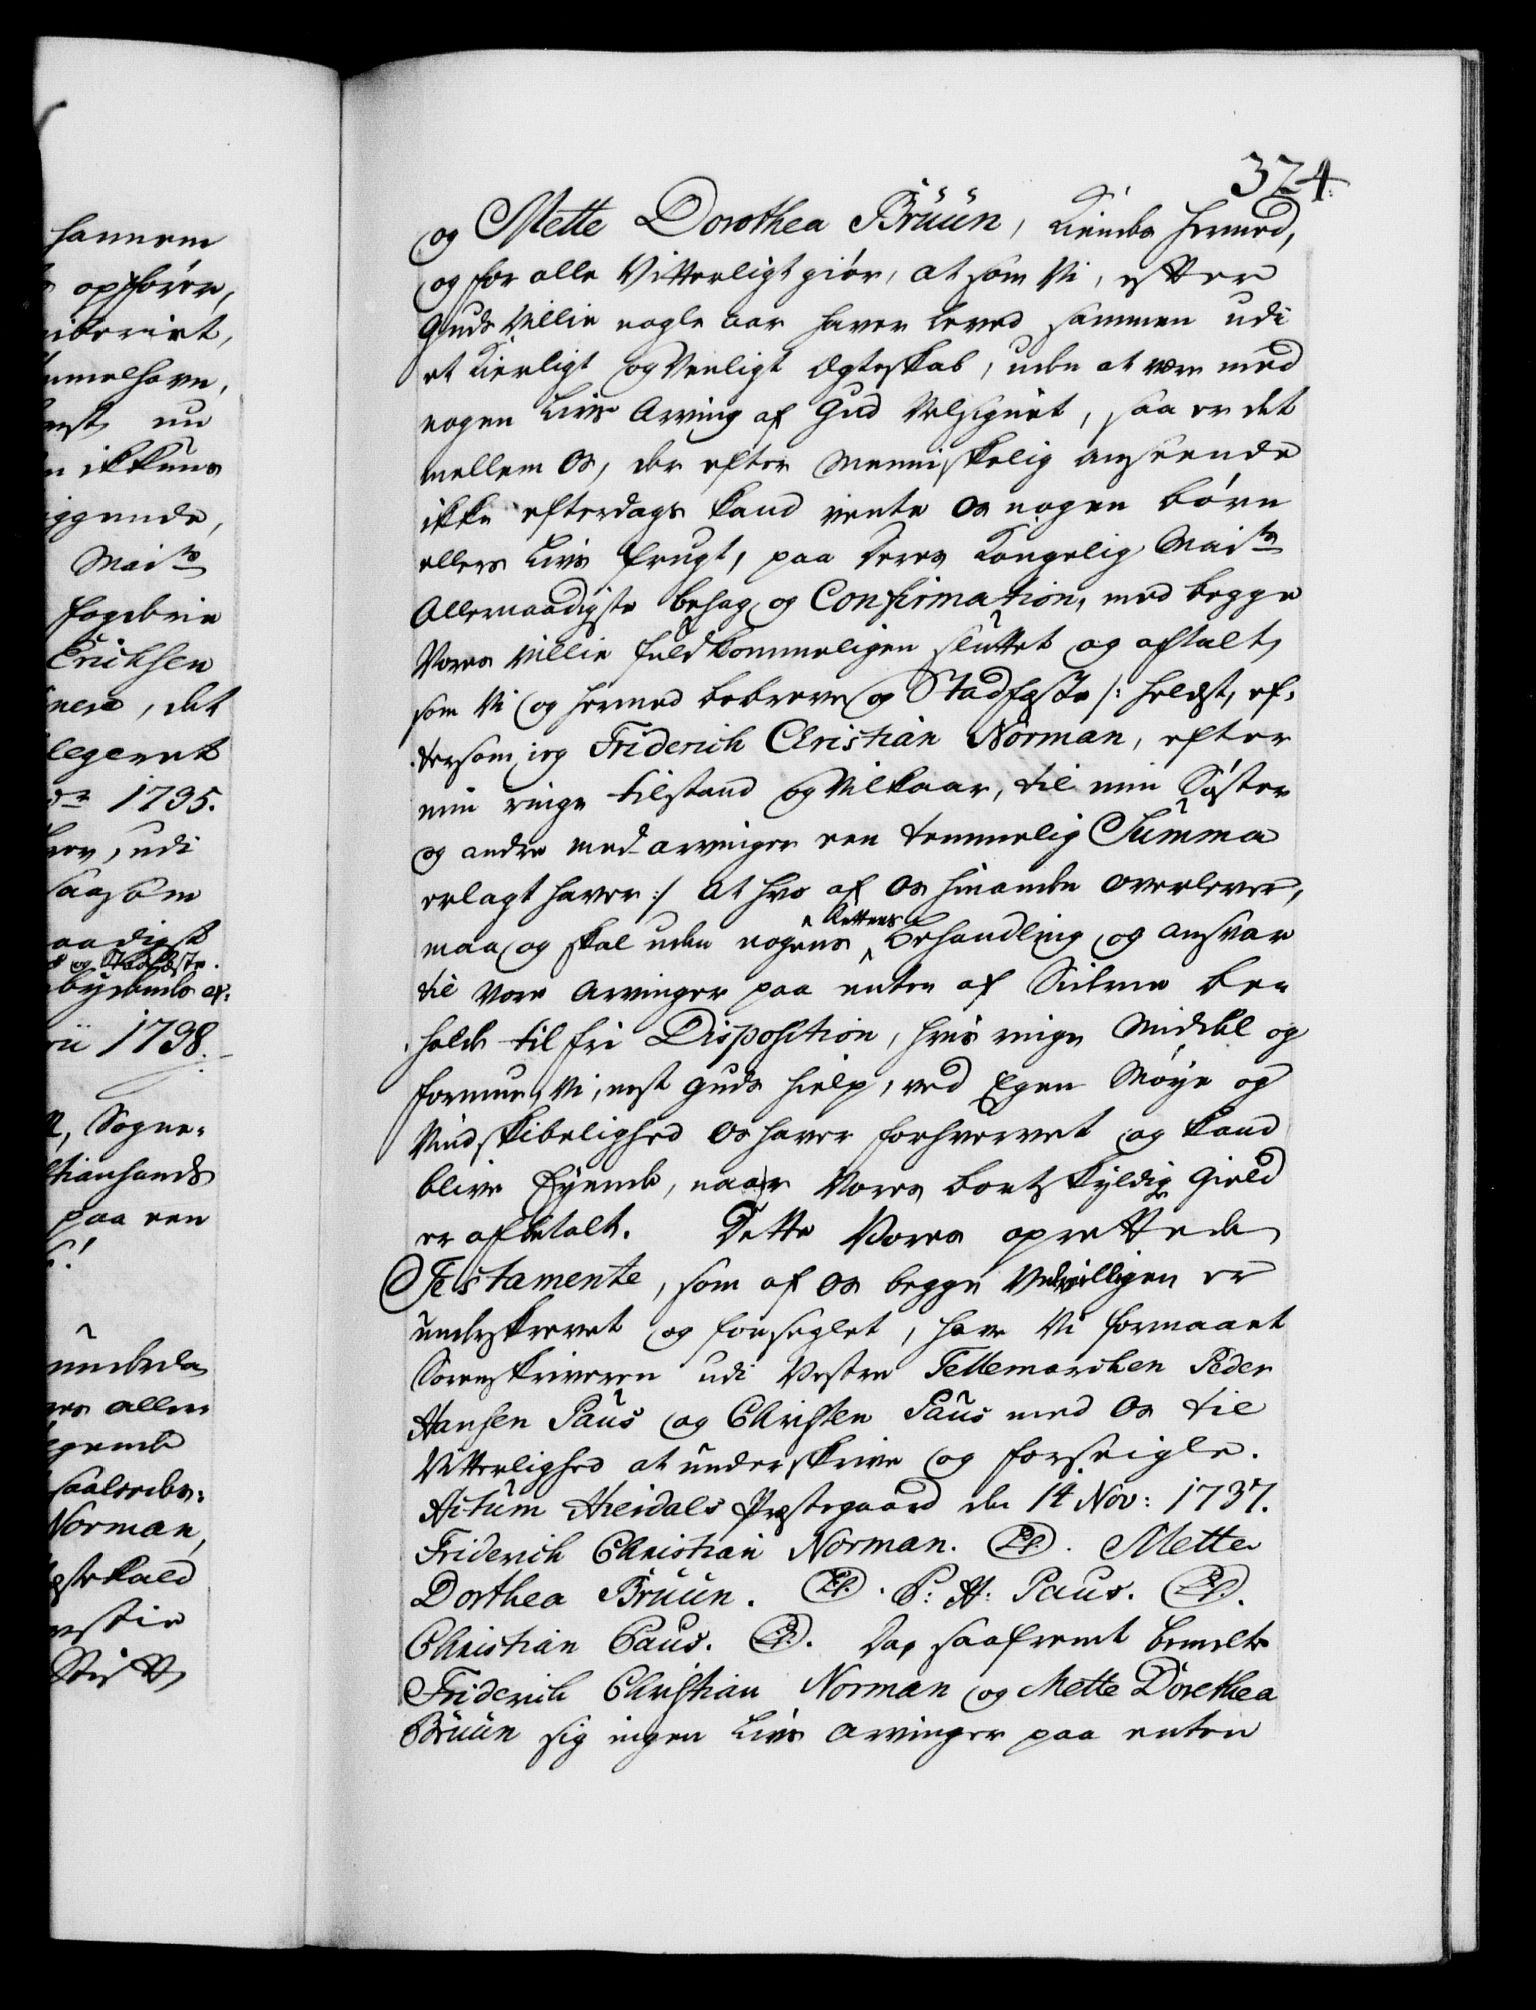 324.
og Mette Dorothea Brüün, Kiendes hermed,
og for alle Vitterligt giør, at som Vi, efter
Guds Villie nogle aar haver leved sammen udi
et Kierligt og Venligt Ægteskab, uden at være med
nogen Livs Arving af Gud Velsignet, saa er det
mellem Os, der efter Menniskelig anseende
ikke efterdags kand vente Os nogen børn
ellers Livs frugt, paa Deres Kongelig Maits
Allernaadigste behag og Confirmation, med begge
Vores Villie fuldkommeligen sluttet og aftalt,
som Vi og hermed bebreve og Stadfæste /: heldst, ef-
tersom jeg Friderich Christian Norman, efter
min ringe tilstand og Vilkaar, til min Søster
og andre med arvinger een temmelig Summa
erlagt haver :/ at hvo af Os hinanden overlever,
maa og skal uden nogens Rettens behandling og ansvar
til Vore Arvinger paa enten af Siderne be-
holde til fri Disposition, hvis ringe Middel og
formue, Vi, nest Guds hielp, ved Egen Møye og
Vindskibelighed Os haver forhvervet og kand
blive Eyende, naar Vores bortskyldig Gield
er afbetalt. Dette Vores oprettede
Testamente, som af Os begge Velvilligen er
underskrevet og forseglet, have Vi formaaet
Sorenskriveren udi Vestre Tellemarchen Peder
Hansen Paus og Christen Paus med Os til
Vitterlighed at underskrive og forseigle.
Actum Hierdals Præstegaard den 14 Nov: 1737.
Friderich Christian Norman. (LS). Mette
Dorthea Brüün. (LS). P: H: Paus. (LS).
Christian Paus. (LS). Dog saafremt bemelte
Friderich Christian Norman og Mette Dorethea
Brüün sig ingen Livs Arvinger paa enten